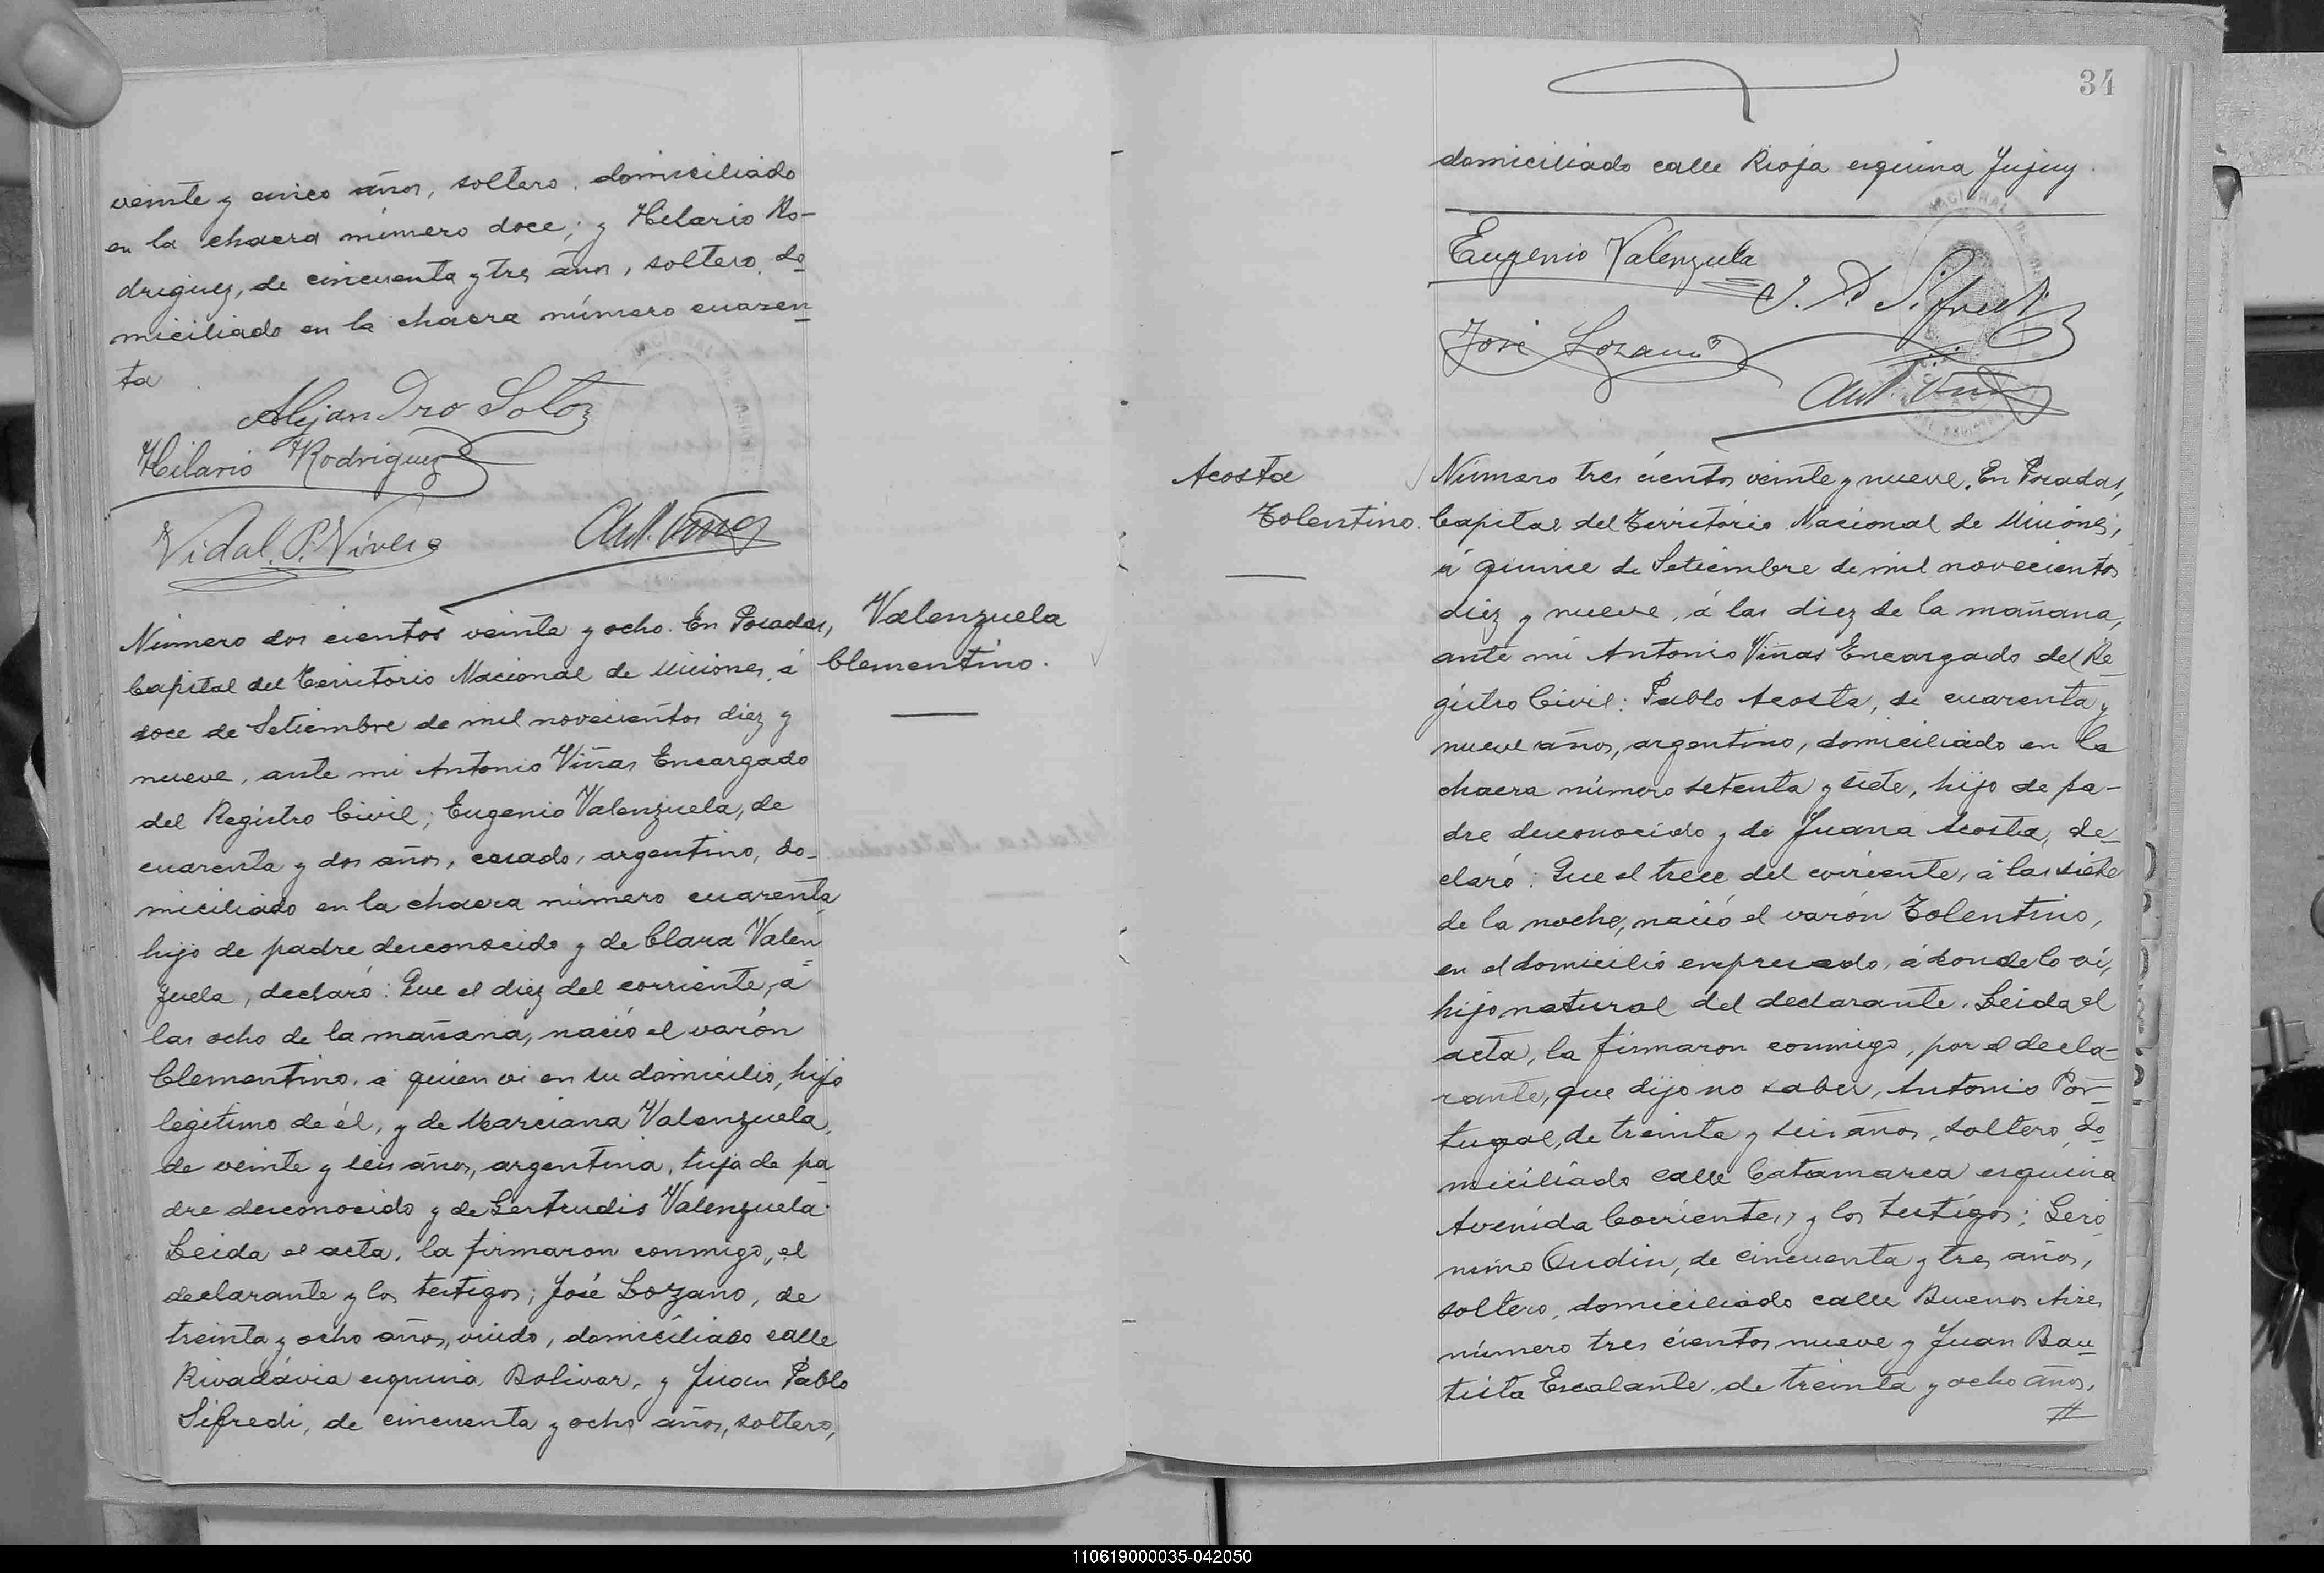 veinte y cinco años, soltero, domiciliado
en la chacra número doce; y Hilario Ro-
driguez, de cincuenta y tres años, soltero, do-
miciliado en la chacra número cuaren-
ta
Alejandro Soto
Hilario Rodriguez
Vidal P. Nivero
Ant. Viñas
Número dos cientos veinte y ocho. En Posadas,
Capital del Territorio Nacional de Misiones, á
doce de Setiembre de mil novecientos diez y
nueve, ante mi Antonio Viñas Encargado
del Registro Civil; Eugenio Valenzuela, de
cuarenta y dos años, casado, argentino, do-
miciliado en la chacra número cuarenta
hijo de padre desconocido y de Clara Valen=
zuela, declaró: Que el diez del corriente, á
las ocho de la mañana, nació el varón
Clementino, á quien vi en su domicilio, hijo
legítimo de él, y de Marciana Valenzuela,
de veinte y seis años, argentina, hija de pa-
dre desconocido y de Gertrudis Valenzuela.
Leida el acta, la firmaron conmigo, el
declarante y los testigos; José Lozano, de
treinta y ocho años, viudo, domiciliado calle
Rivadávia esquina Bolivar, y Juan Pablo
Sifredi, de cincuenta y ocho años, soltero,
Valenzuela
Clementino.
34
domiciliado calle Rioja esquina Jujuy.
Eugenio Valenzuela
J. P. Sifredi
José Lozano
Ant. Viñas
Acosta
Tolentino.
Número tres cientos veinte y nueve. En Posadas,
Capital del Territorio Nacional de Misiones,
á quince de Setiembre de mil novecientos
diez y nueve, á las diez de la mañana,
ante mi Antonio Viñas Encargado del Re-
gistro Civil: Pablo Acosta, de cuarenta y
nueve años, argentino, domiciliado en la
chacra número setenta y siete, hijo de pa-
dre desconocido y de Juana Acosta, de-
claró: Que el trece del corriente, á las siete
de la noche, nació el varón Tolentino,
en el domicilio expresado, á donde lo ví,
hijo natural del declarante. Leida el
acta, la firmaron conmigo, por el decla-
rante, que dijo no saber, Antonio Por-
tugal, de treinta y seis años, soltero, do-
miciliado calle Catamarca esquina
Avenida Corrientes, y los testigos; Geró-
nimo Oudin, de cincuenta y tres años,
soltero, domiciliado calle Buenos Aires
número tres cientos nueve y Juan Bau-
tista Escalante, de treinta y ocho años,
110619000035-042050